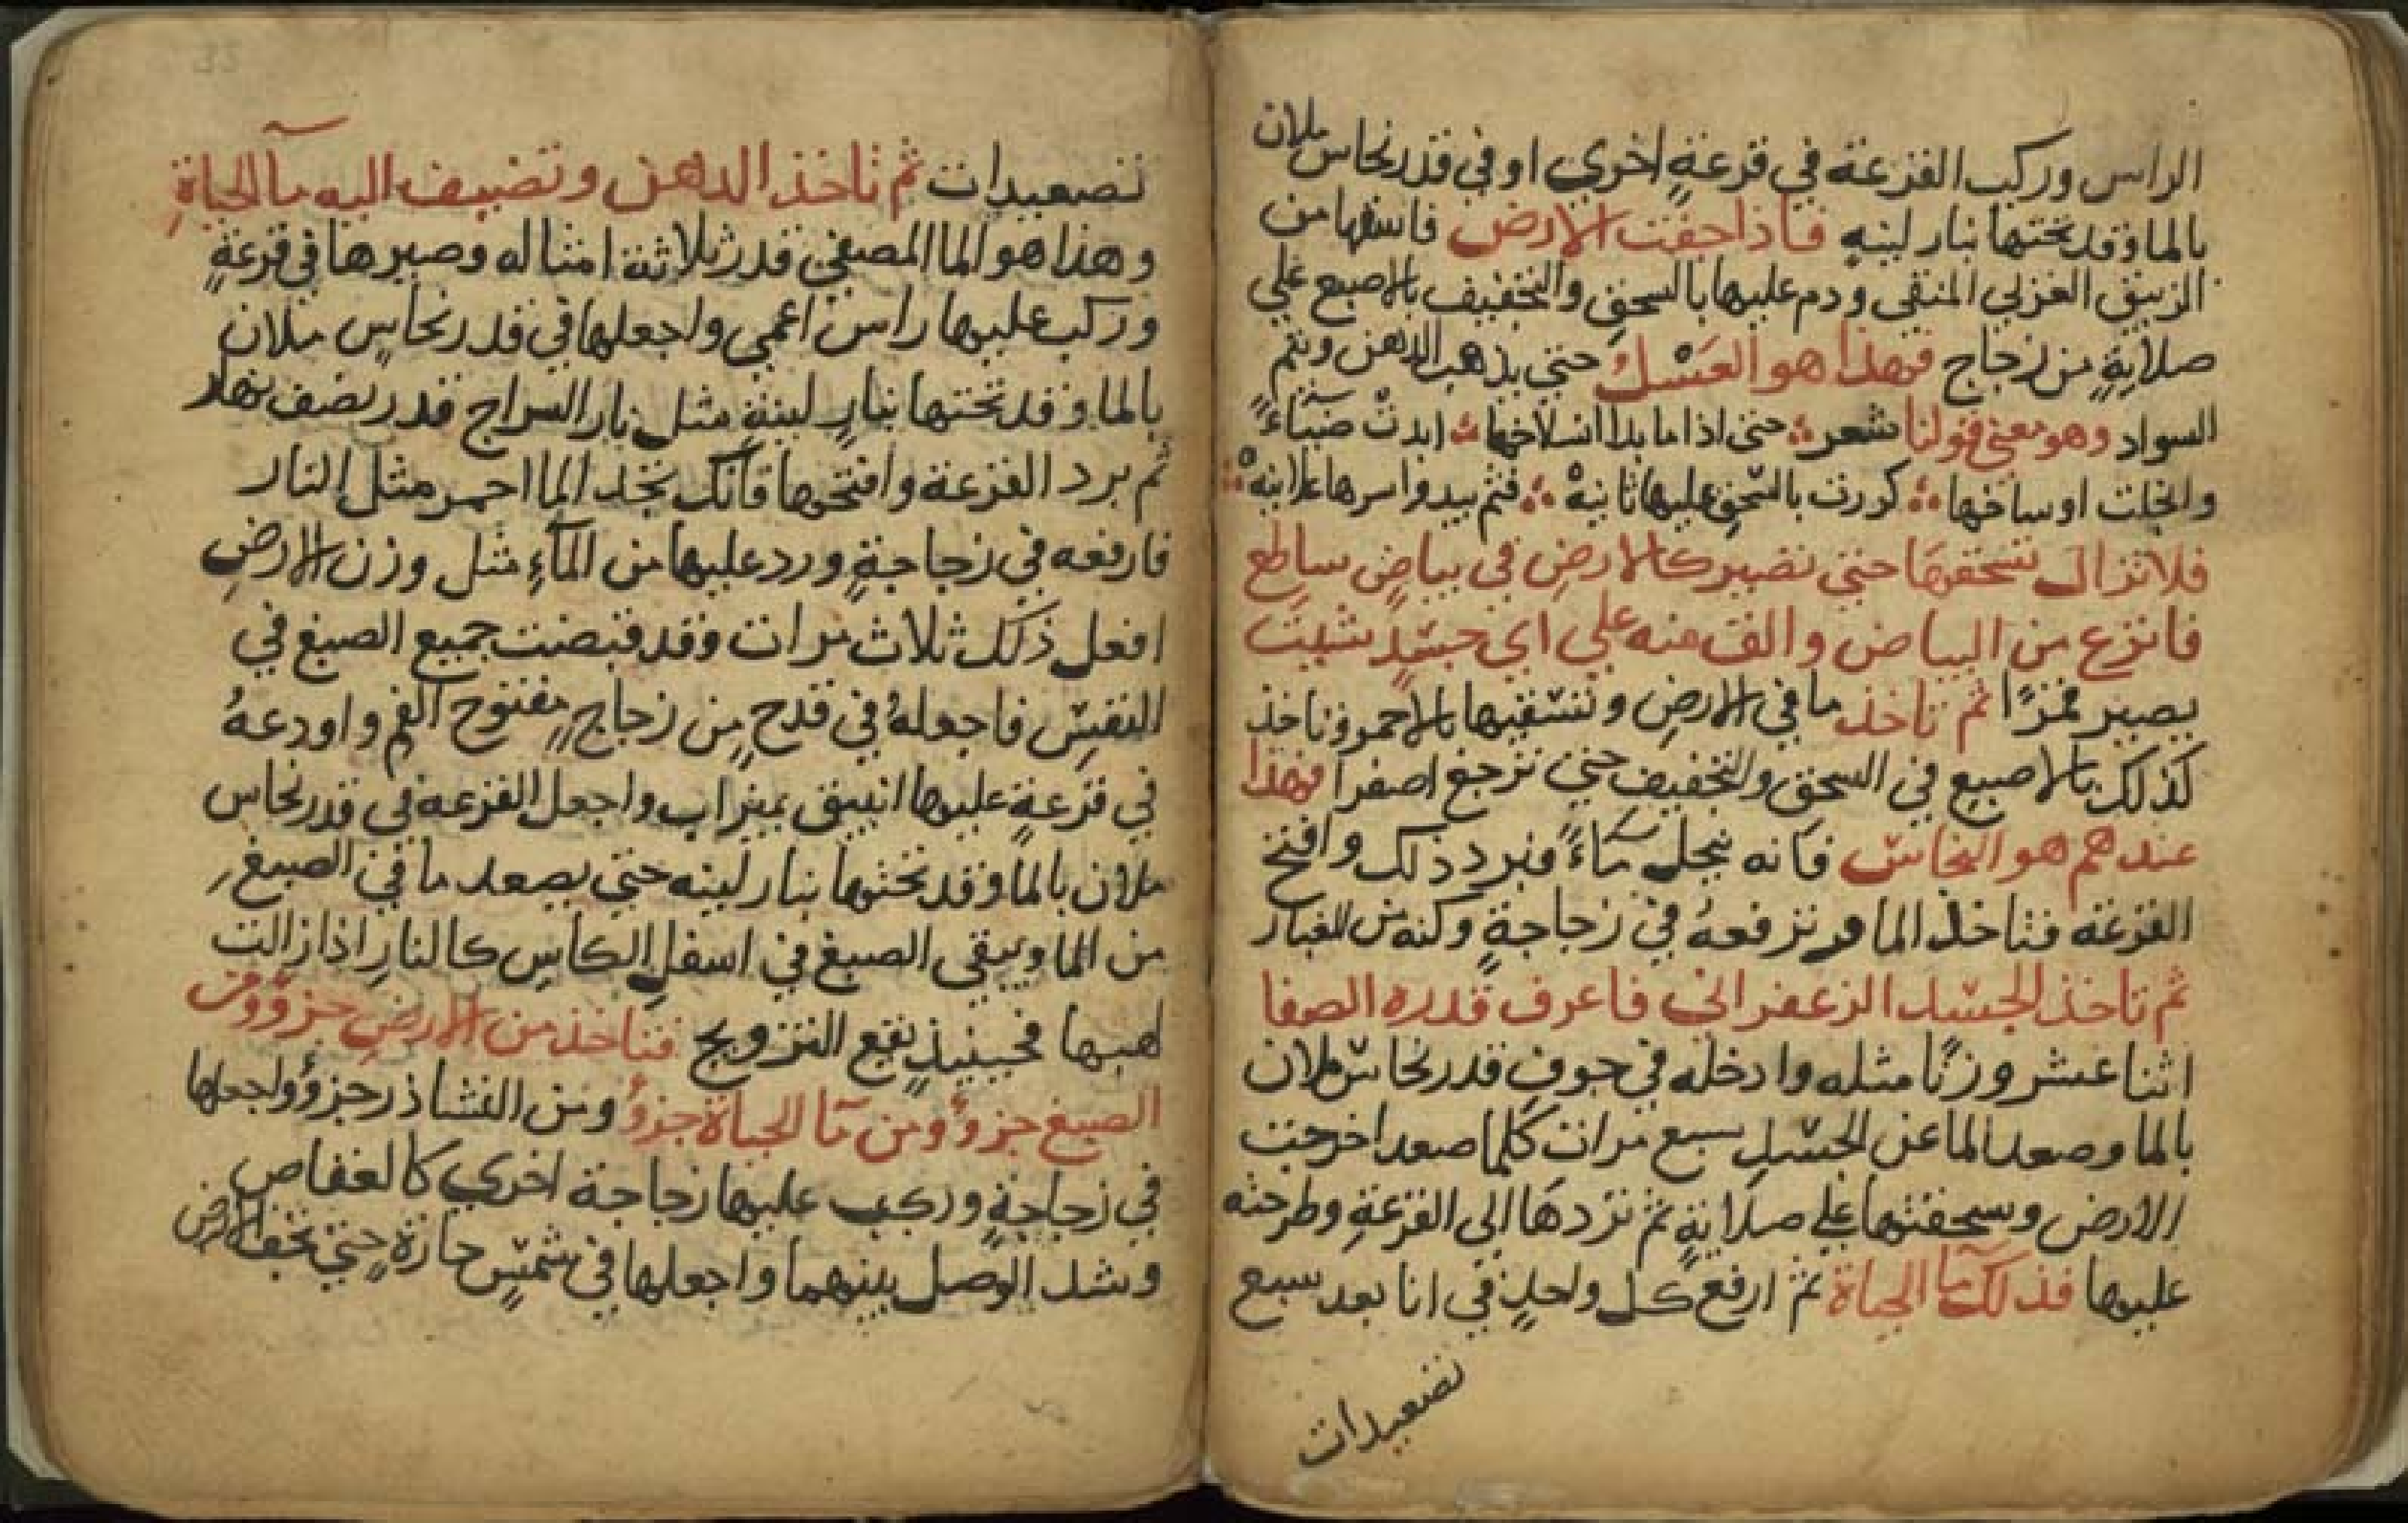 الراس وركب القرعة في قرعةٍ اخري او في قدر نحاس ملان
بالما وقد تحتها بنار لينه فاذا جفت الارض فاسقها من
الزيبق الغربي المنقي ودم عليها بالسحق والتجفيف بالاصبع علي
صلايةٍ من زجاج فهذا هو الغسل حتي يذهب الدهن ويتم
السواد وهو معني قولنا شعر حتي اذا ما بدا انسلاخها ابدت ضياءً
وانجلت اوساخها كررت بالسحق عليها ثانيه فثم يبدوا سرها علانيه
فلا تزال تسحقها حتي تصير كالارض في بياض ساطع
فانزع من البياض والق منه علي اي جسدٍ شيت
يصير قمرًا ثم تاخذ ما في الارض وتسقيها بالاحمر وتاخذ
كذلك بالاصبع في السحق والتجفيف حتي ترجع اصفرا فهذا
عندهم هو النحاس فانه ينحل ماءً فبرد ذلك وافتح
القرعة فتاخذ الما وترفعهُ في زجاجةٍ وكنه من الغبار
ثم تاخذ الجسد الزعفراني فاعرف قدره الصفا
اثنا عشر وزنًا مثله وادخله في جوف قدر نحاس ملان
بالما وصعد الما عن الجسد سبع مرات كلما صعد اخرجت
الارض وسحقتها علي صلايةٍ ثم تردها الي القرعةِ وطرحته
عليها فذلك ما الحياة ثم ارفع كل واحدٍ في انا بعد سبع
تصعيدات
تصعيدات ثم تاخذ الدهن وتضيف اليه ما الحياةِ
وهذا هو الما المصفي قدر ثلاثة امثاله وصيرها في قرعةٍ
وركب عليها راس اعمي واجعلها في قدر نحاسٍ ملان
بالما وقد تحتها بنارٍ لينةٍ مثل نار السراج قدر نصف نهار
ثم برد القرعة وافتحها فانك تجد الما احمر مثل النار
فارفعه في زجاجةٍ ورد عليها من الماءِ مثل وزن الارضِ
افعل ذلك ثلاث مرات وقد قبضت جميع الصبغ في
النفسِ فاجعلهُ في قدحٍ من زجاجٍ مفتوح الفم واودعهُ
في قرعةٍ عليها انبيق بميزاب واجعل القرعه في قدر نحاس
ملان بالما وقد تحتها بنار لينه حتي يصعد ما في الصبغ
من الما ويبقي الصبغ في اسفلِ الكاسِ كالنارِ اذا زالت
لهبها فحينيذٍ يقع التزويج فتاخذ من الارضِ جزؤ ومن
الصبغ جزؤ ومن ما الحياة جزؤ ومن النشاذر جزؤ واجعلها
في زجاجةٍ وركب عليها زجاجة اخري كالعفاص
وشد الوصل بينهما واجعلها في شمسٍ حارةٍ حتي تجف الارض